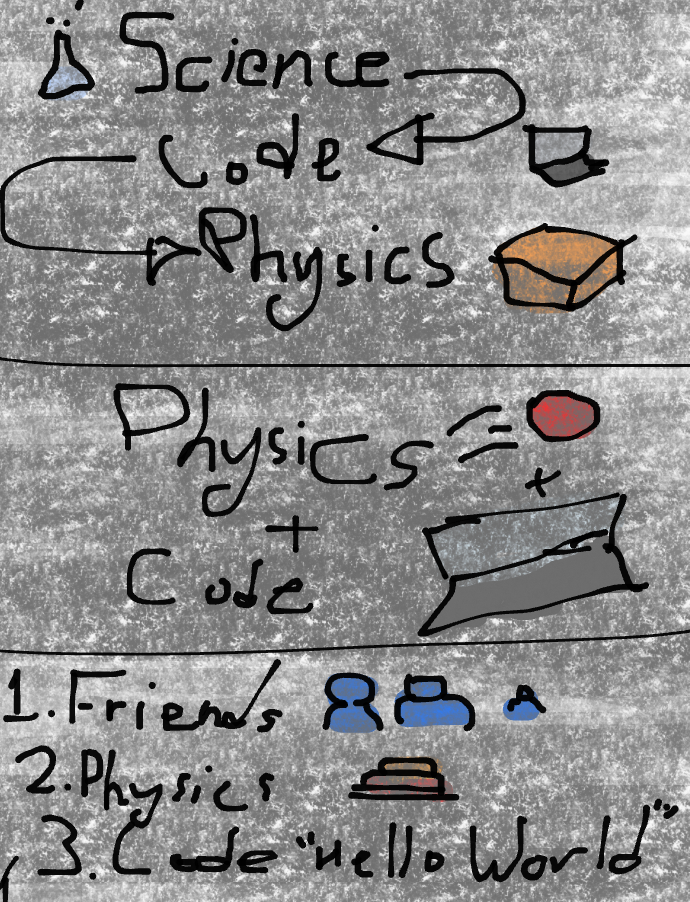 Science
Code
Physics
Physics
+
+
Code
1. Friends
2. Physics
3. Code "Hello World"